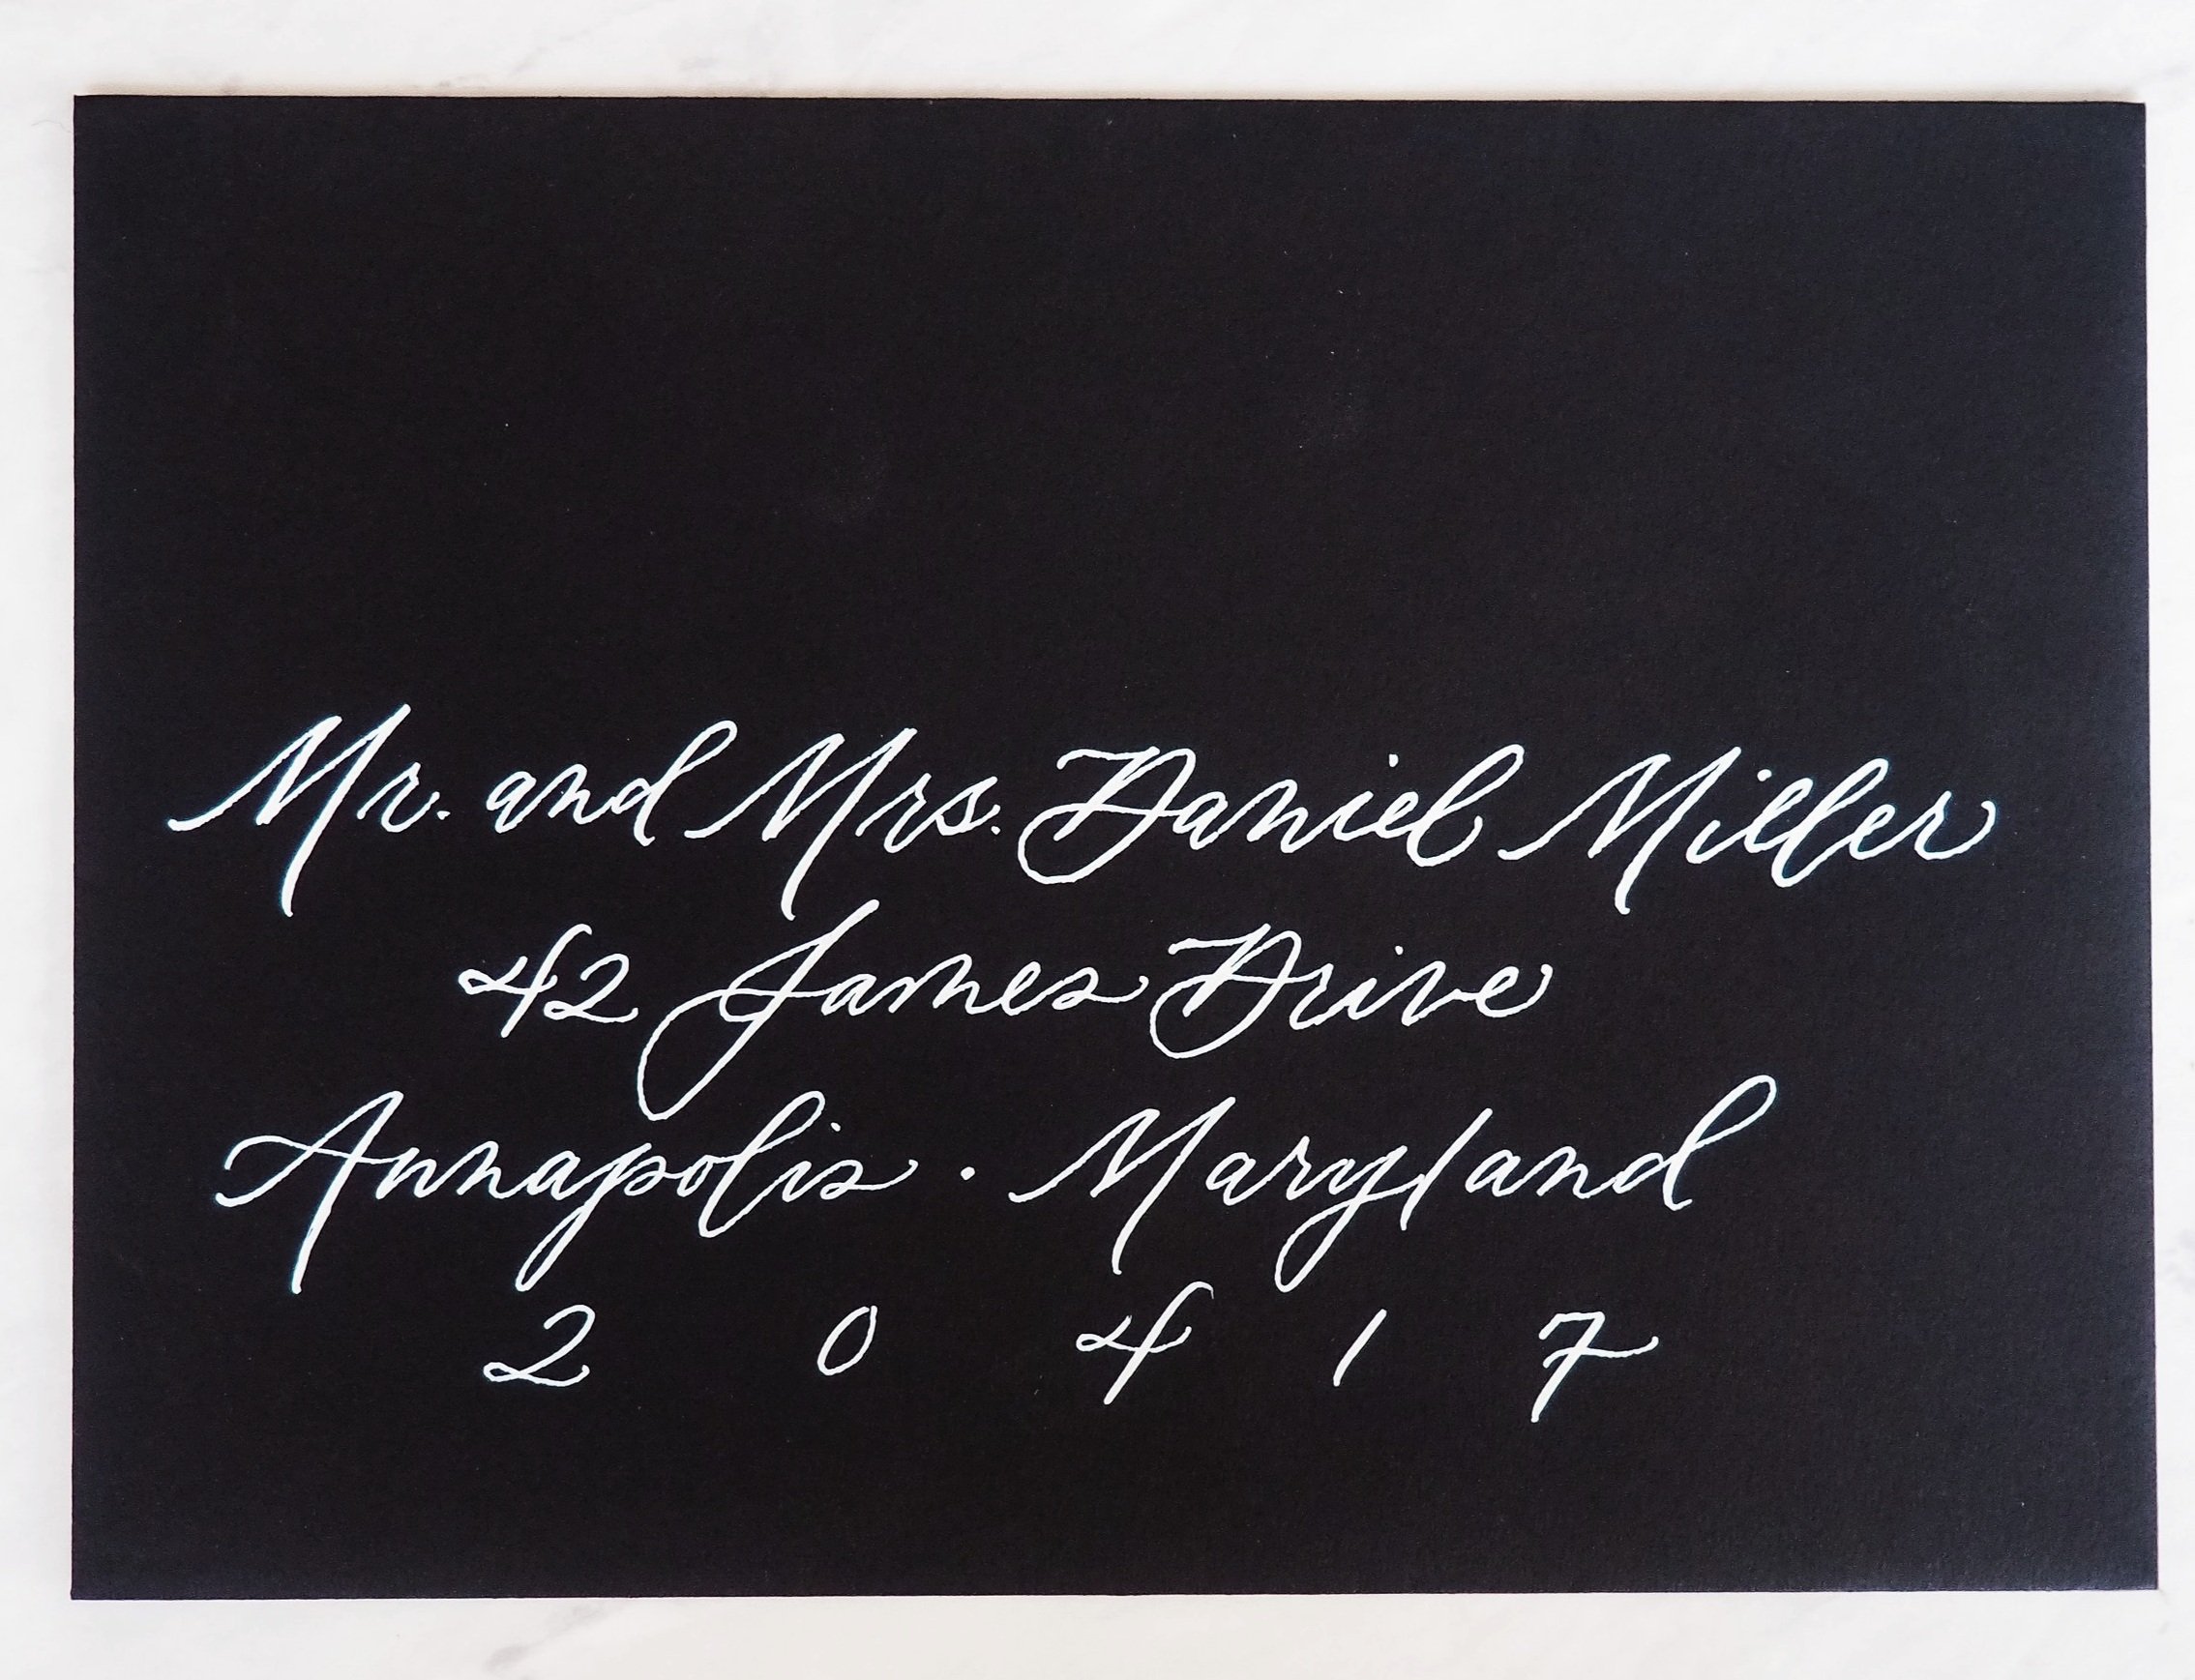 Mr. and Mrs. Daniel Miller
42 James Drive
Annapolis · Maryland
2 0 4 1 7